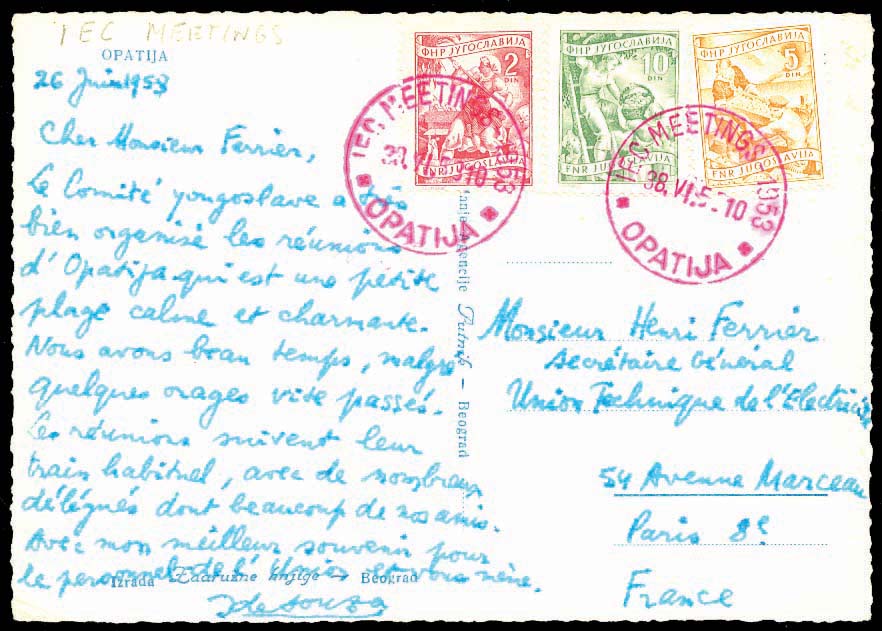 IEC MEETINGS
OPATIJA
26 Juin 1953
Cher Monsieur Ferrier,
Le Comité yougoslave a très
bien organisé les réunions
d'Opatija qui est une petite
plage calme et charmante.
Nous avons beau temps, malgré
quelques orages vite passés.
Les réunions suivent leur
train habituel, avec de nombreux
délégués dont beaucoup de nos amis.
Avec mon meilleur souvenir pour
le personnel de l'Union et vous même.
Izrada Zadružne knjige — Beograd
Agencije Putnik — Beograd
ФНР ЈУГОСЛАВИЈА
2
DIN
FNR JUGOSLAVIJA
ФНР ЈУГОСЛАВИЈА
10
DIN
FNR JUGOSLAVIJA
ФНР ЈУГОСЛАВИЈА
5
DIN
FNR JUGOSLAVIJA
IEC MEETINGS 1953
OPATIJA
IEC MEETINGS 1953
OPATIJA
Monsieur Henri Ferrier
Secrétaire Général
Union Technique de l'Electricité
54 Avenue Marceau
Paris 8e
France